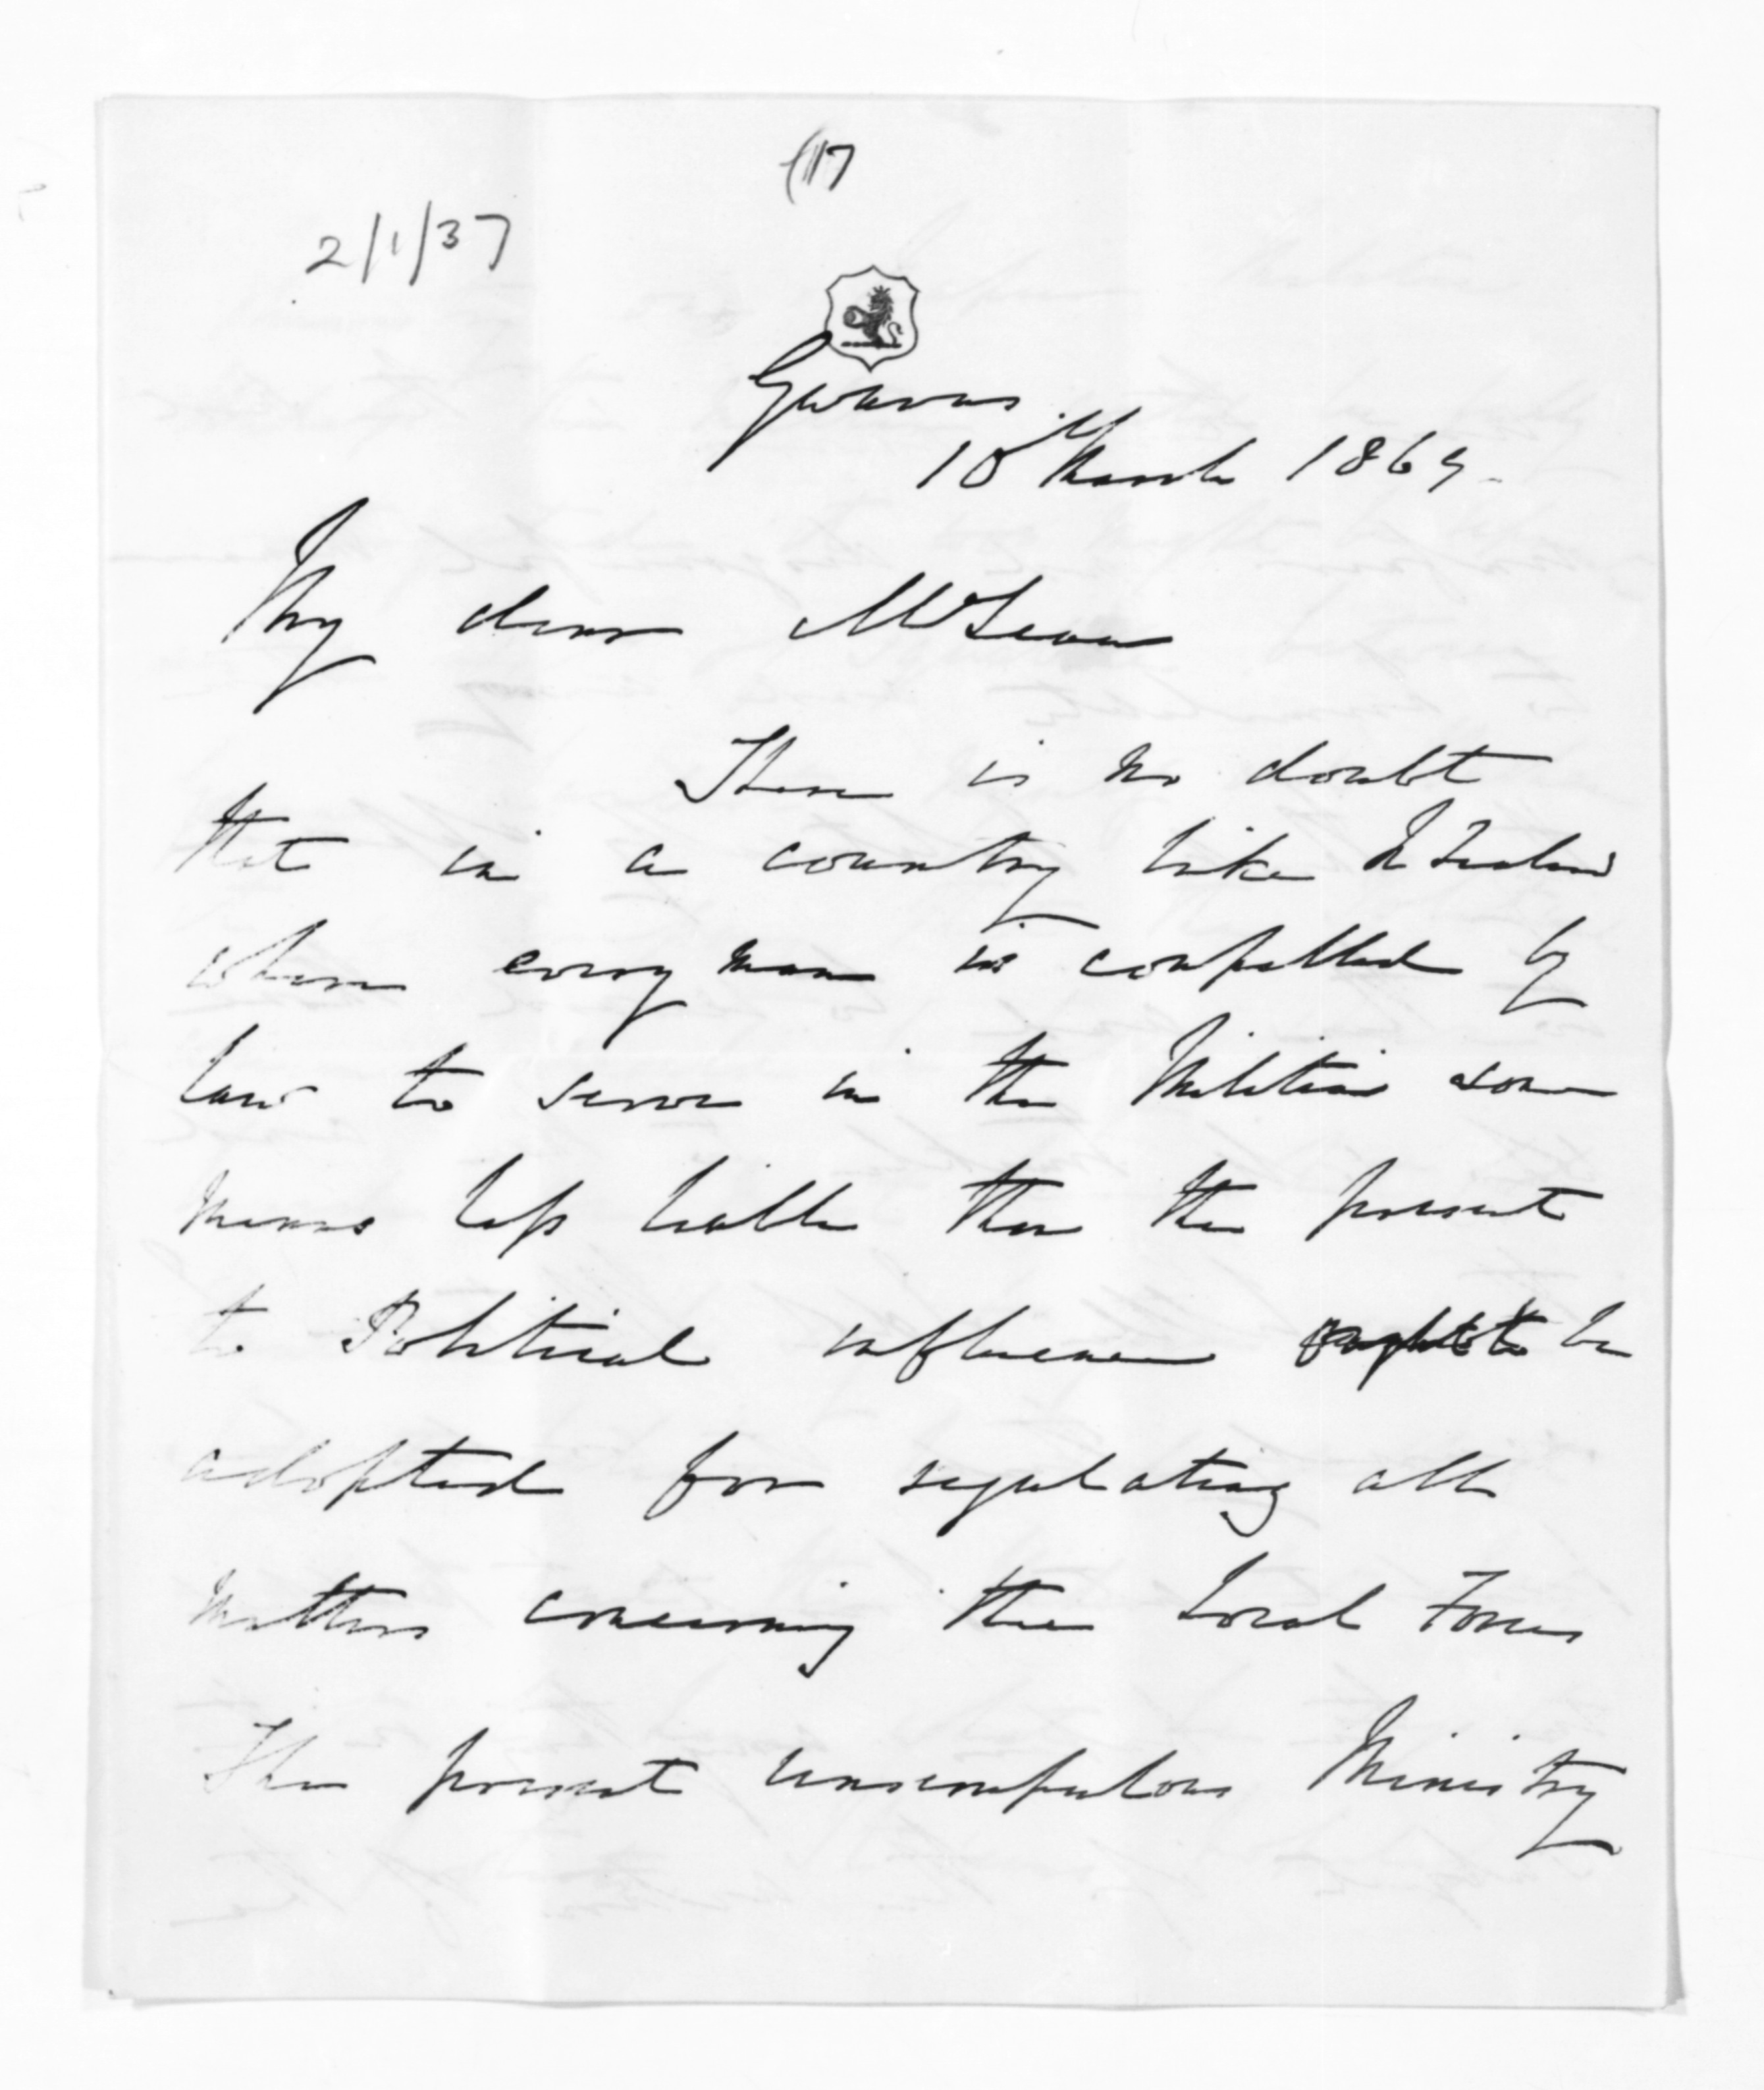 117
2/1/37
Gwavas
10 March 1869.
My dear McLean
There is no doubt
that in a country like N Zealand
where every man is compelled by
law to serve in the Militia some
means less liable than the present
to Political influence ought to be
adopted for regulating all
matters concerning the Local Forces
The present unscrupulous Ministry